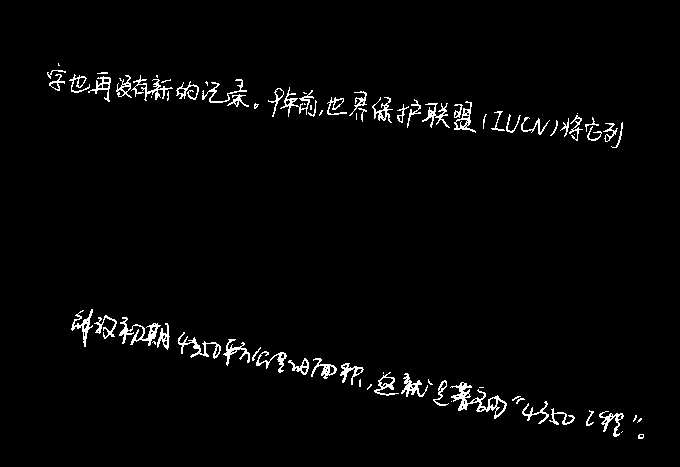 字也再没有新的记录。9年前,世界保护联盟(IUCN)将它列
解放初期4350平方公里的面积,这就是著名的“4350工程”。